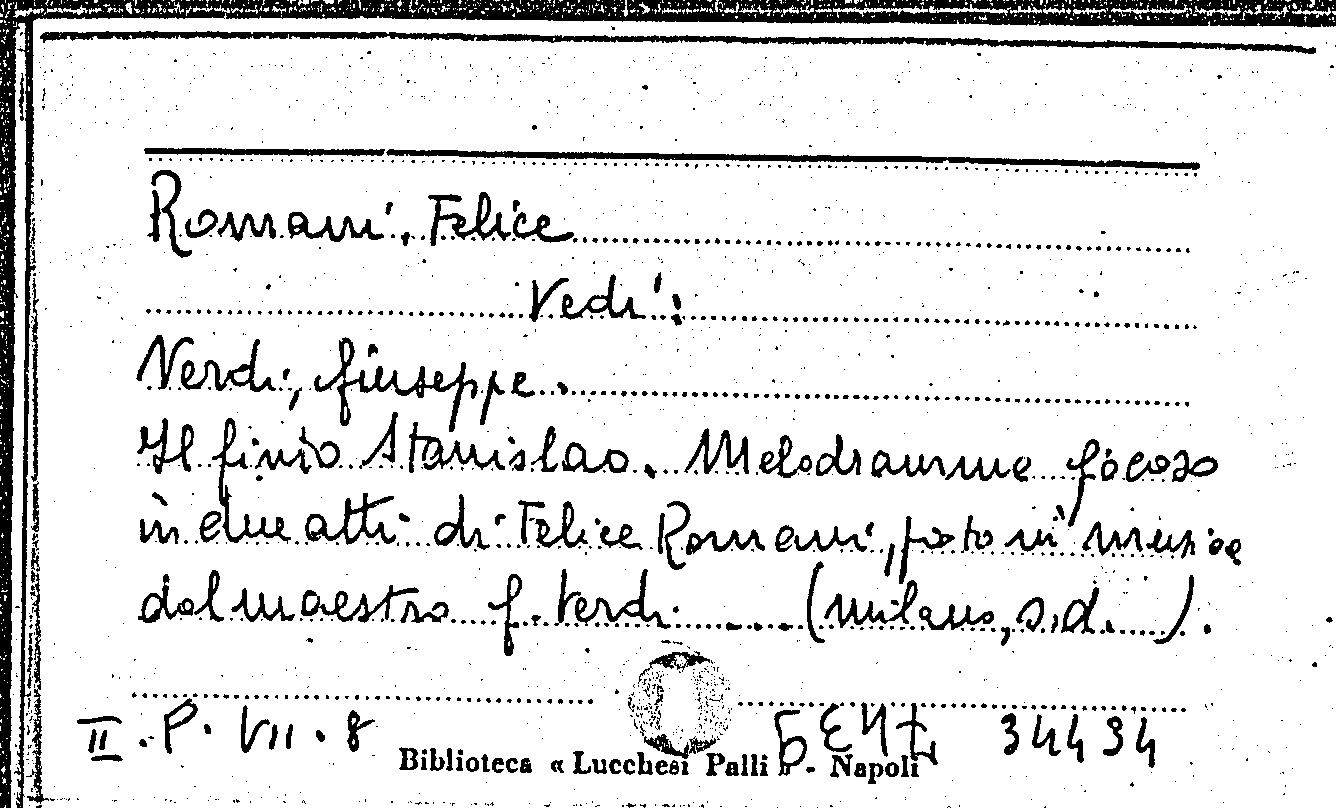 Romani, Felice
Vedi:
Verdi, Giuseppe.
Il finto Stanislao. Melodramma giocoso
in due atti di Felice Romani, posto in musica
dal maestro G. Verdi .... (Milano, s.d. ).
II . P. VII . 8 34494
Biblioteca « Lucchesi Palli » - Napoli